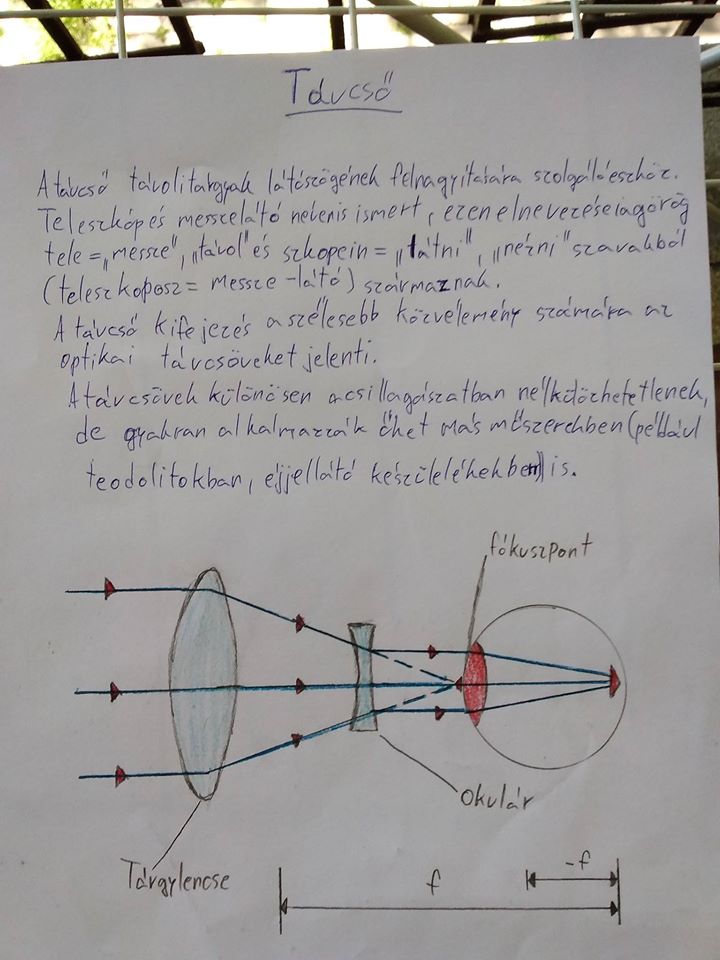 Távcső
A távcső távoli tárgyak látószögének felnagyítására szolgáló eszköz.
Teleszkóp és messzelátó néven is ismert, ezen elnevezései a görög
tele = „messze”, „távol” és szkopein = „látni”, „nézni” szavakból
(teleszkoposz = messze - látó) származnak.
A távcső kifejezés a szélesebb közvélemény számára az
optikai távcsöveket jelenti.
A távcsövek különösen a csillagászatban nélkülözhetetlenek,
de gyakran alkalmazzák őket más műszerekben (például
teodolitokban, éjjellátó készülékekben) is.
fókuszpont
okulár
Tárgylencse
-f
f